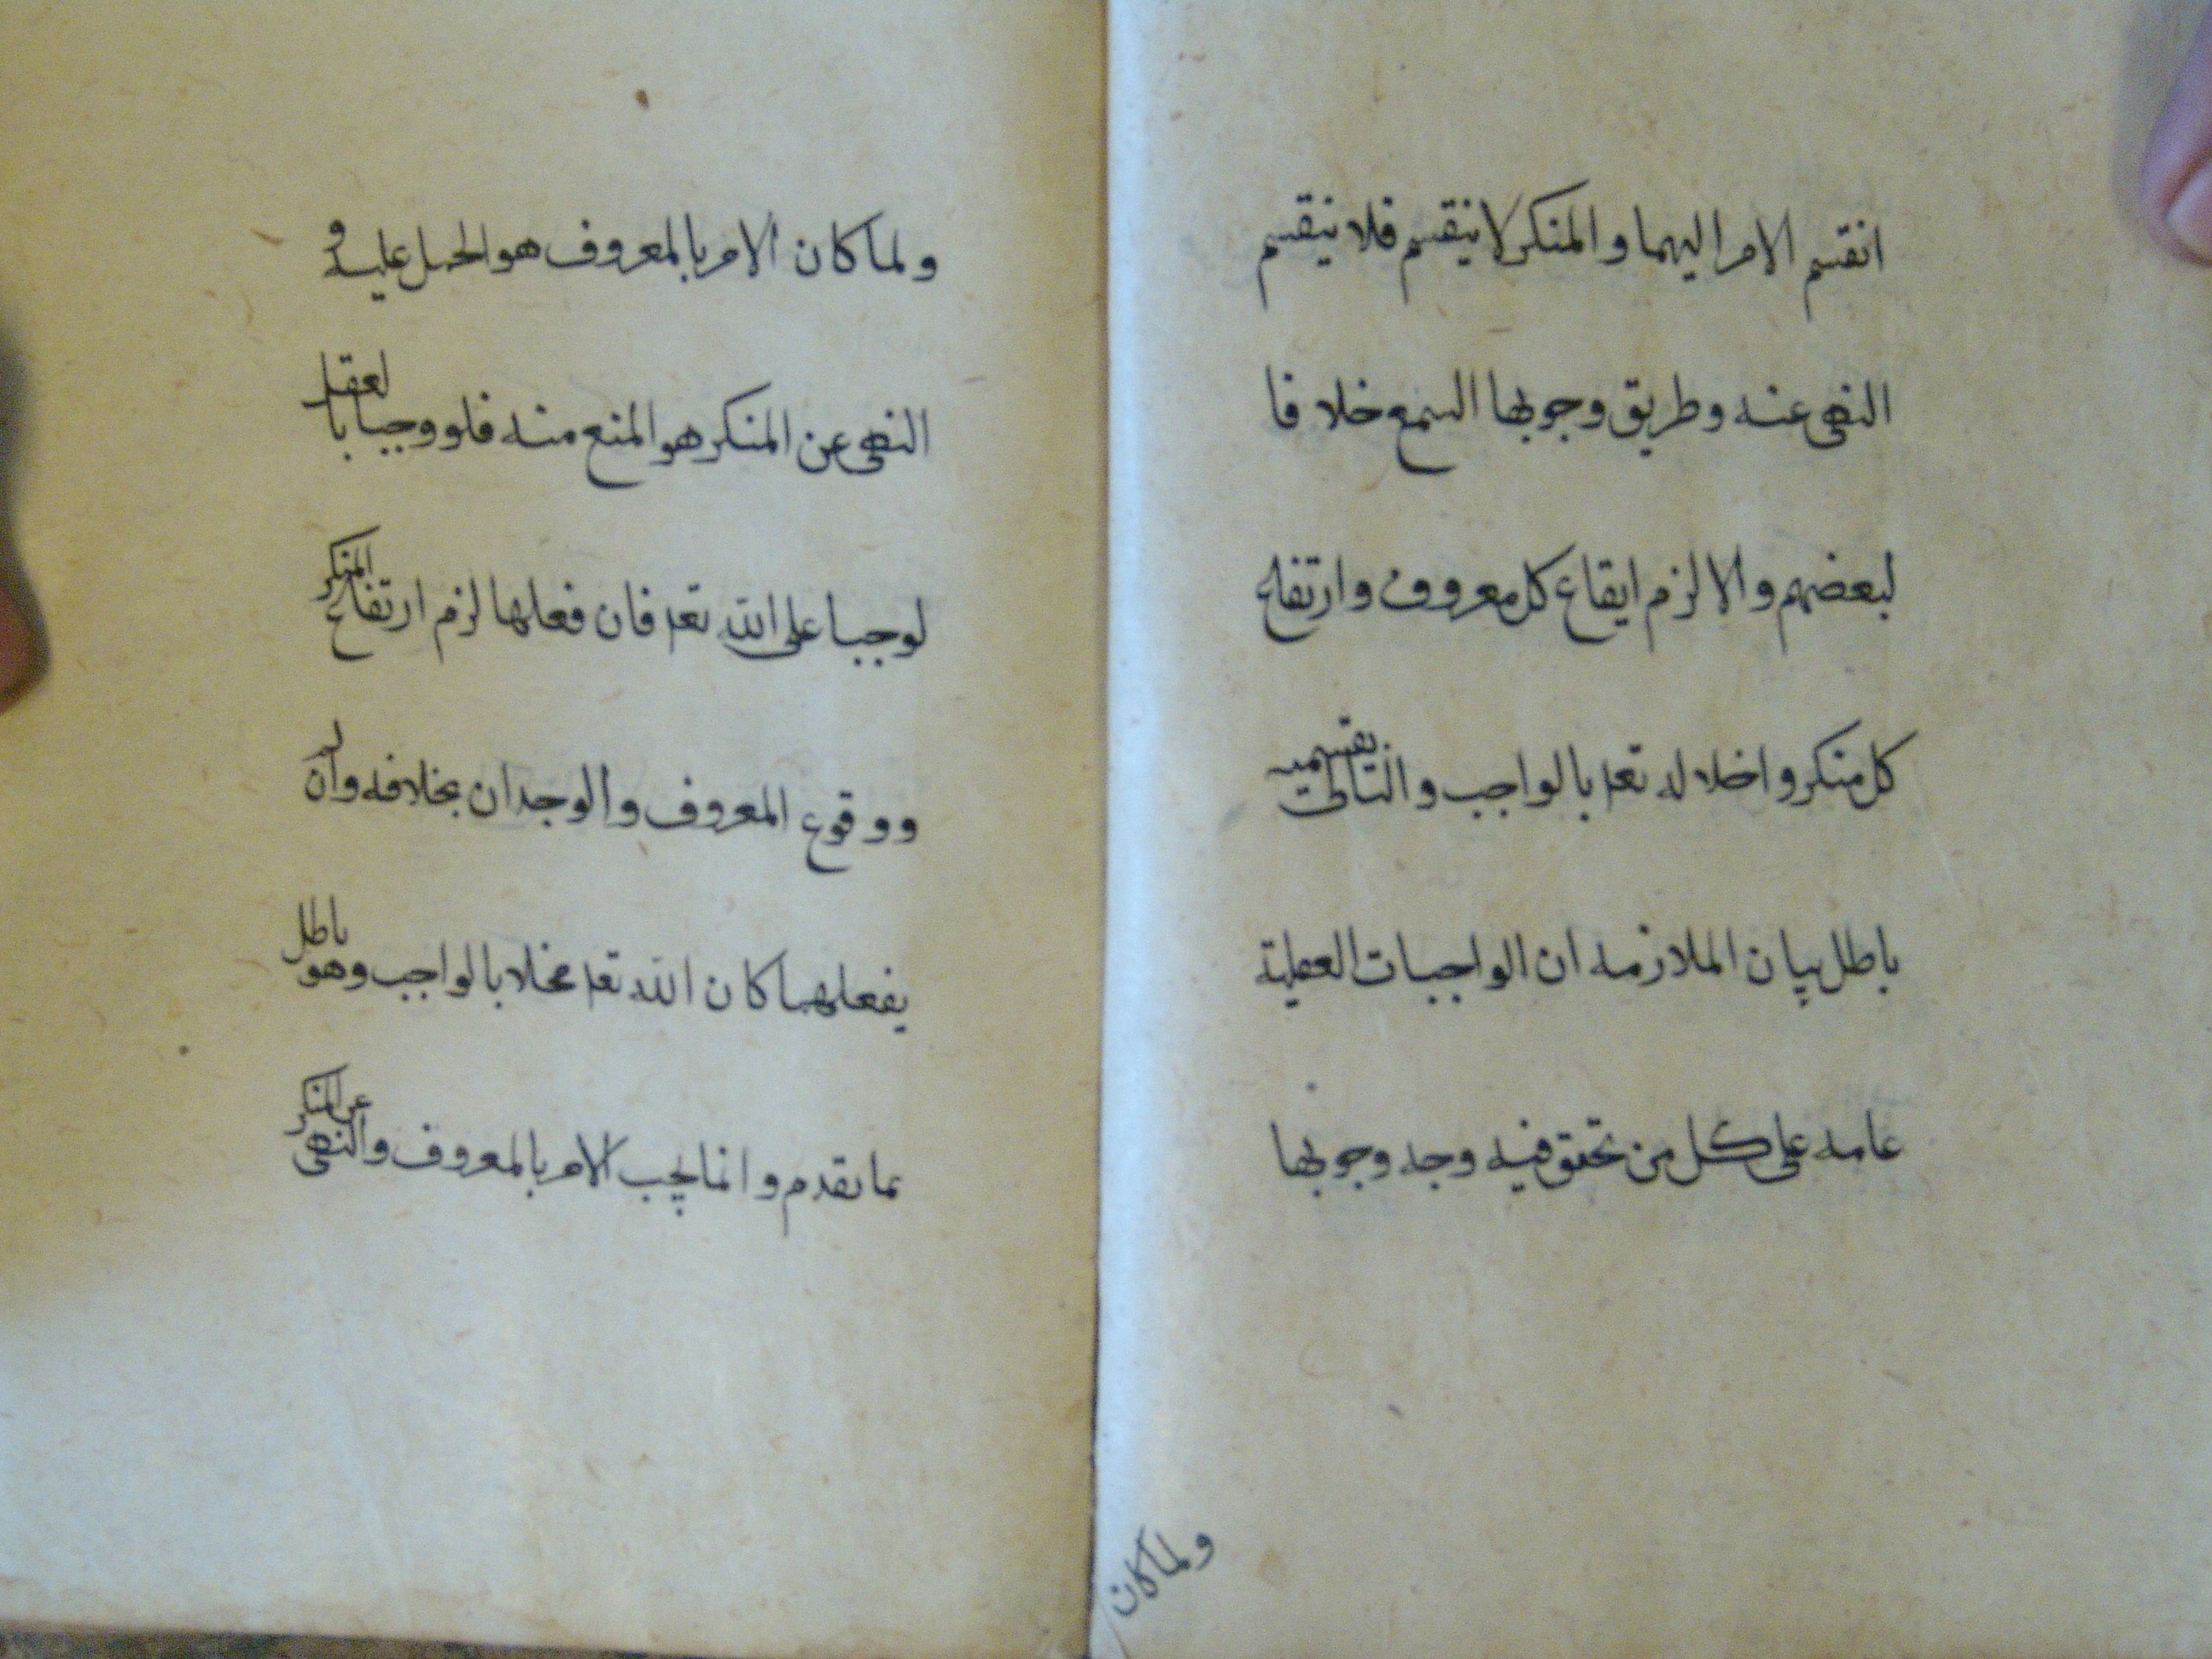 انقسم الامر اليهما و المنكر لا ينقسم فلا ينقسم
النهى عنه و طريق وجوبها السمع خلافا
لبعضهم و الا لزم ايقاع كل معروف و ارتفاع
كل منكر و اخلاله تعه بالواجب و التالى بقسميه
باطل بيان الملازمه ان الواجبات العقلية
عامه على كل من تحقق فيه وجه وجوبها
ولما كان
و لما كان الامر بالمعروف هو الحمل عليه و
النهى عن المنكر هو المنع منه فلو وجبا بالعقل
لوجبا على الله تعه فان فعلها لزم ارتفاع المنكر
و وقوع المعروف و الوجدان بخلافه و ان لم
يفعلهما كان الله تعه مخلا بالواجب و هو باطل
بما تقدم و انما يجب الامر بالمعروف و النهى عن المنكر